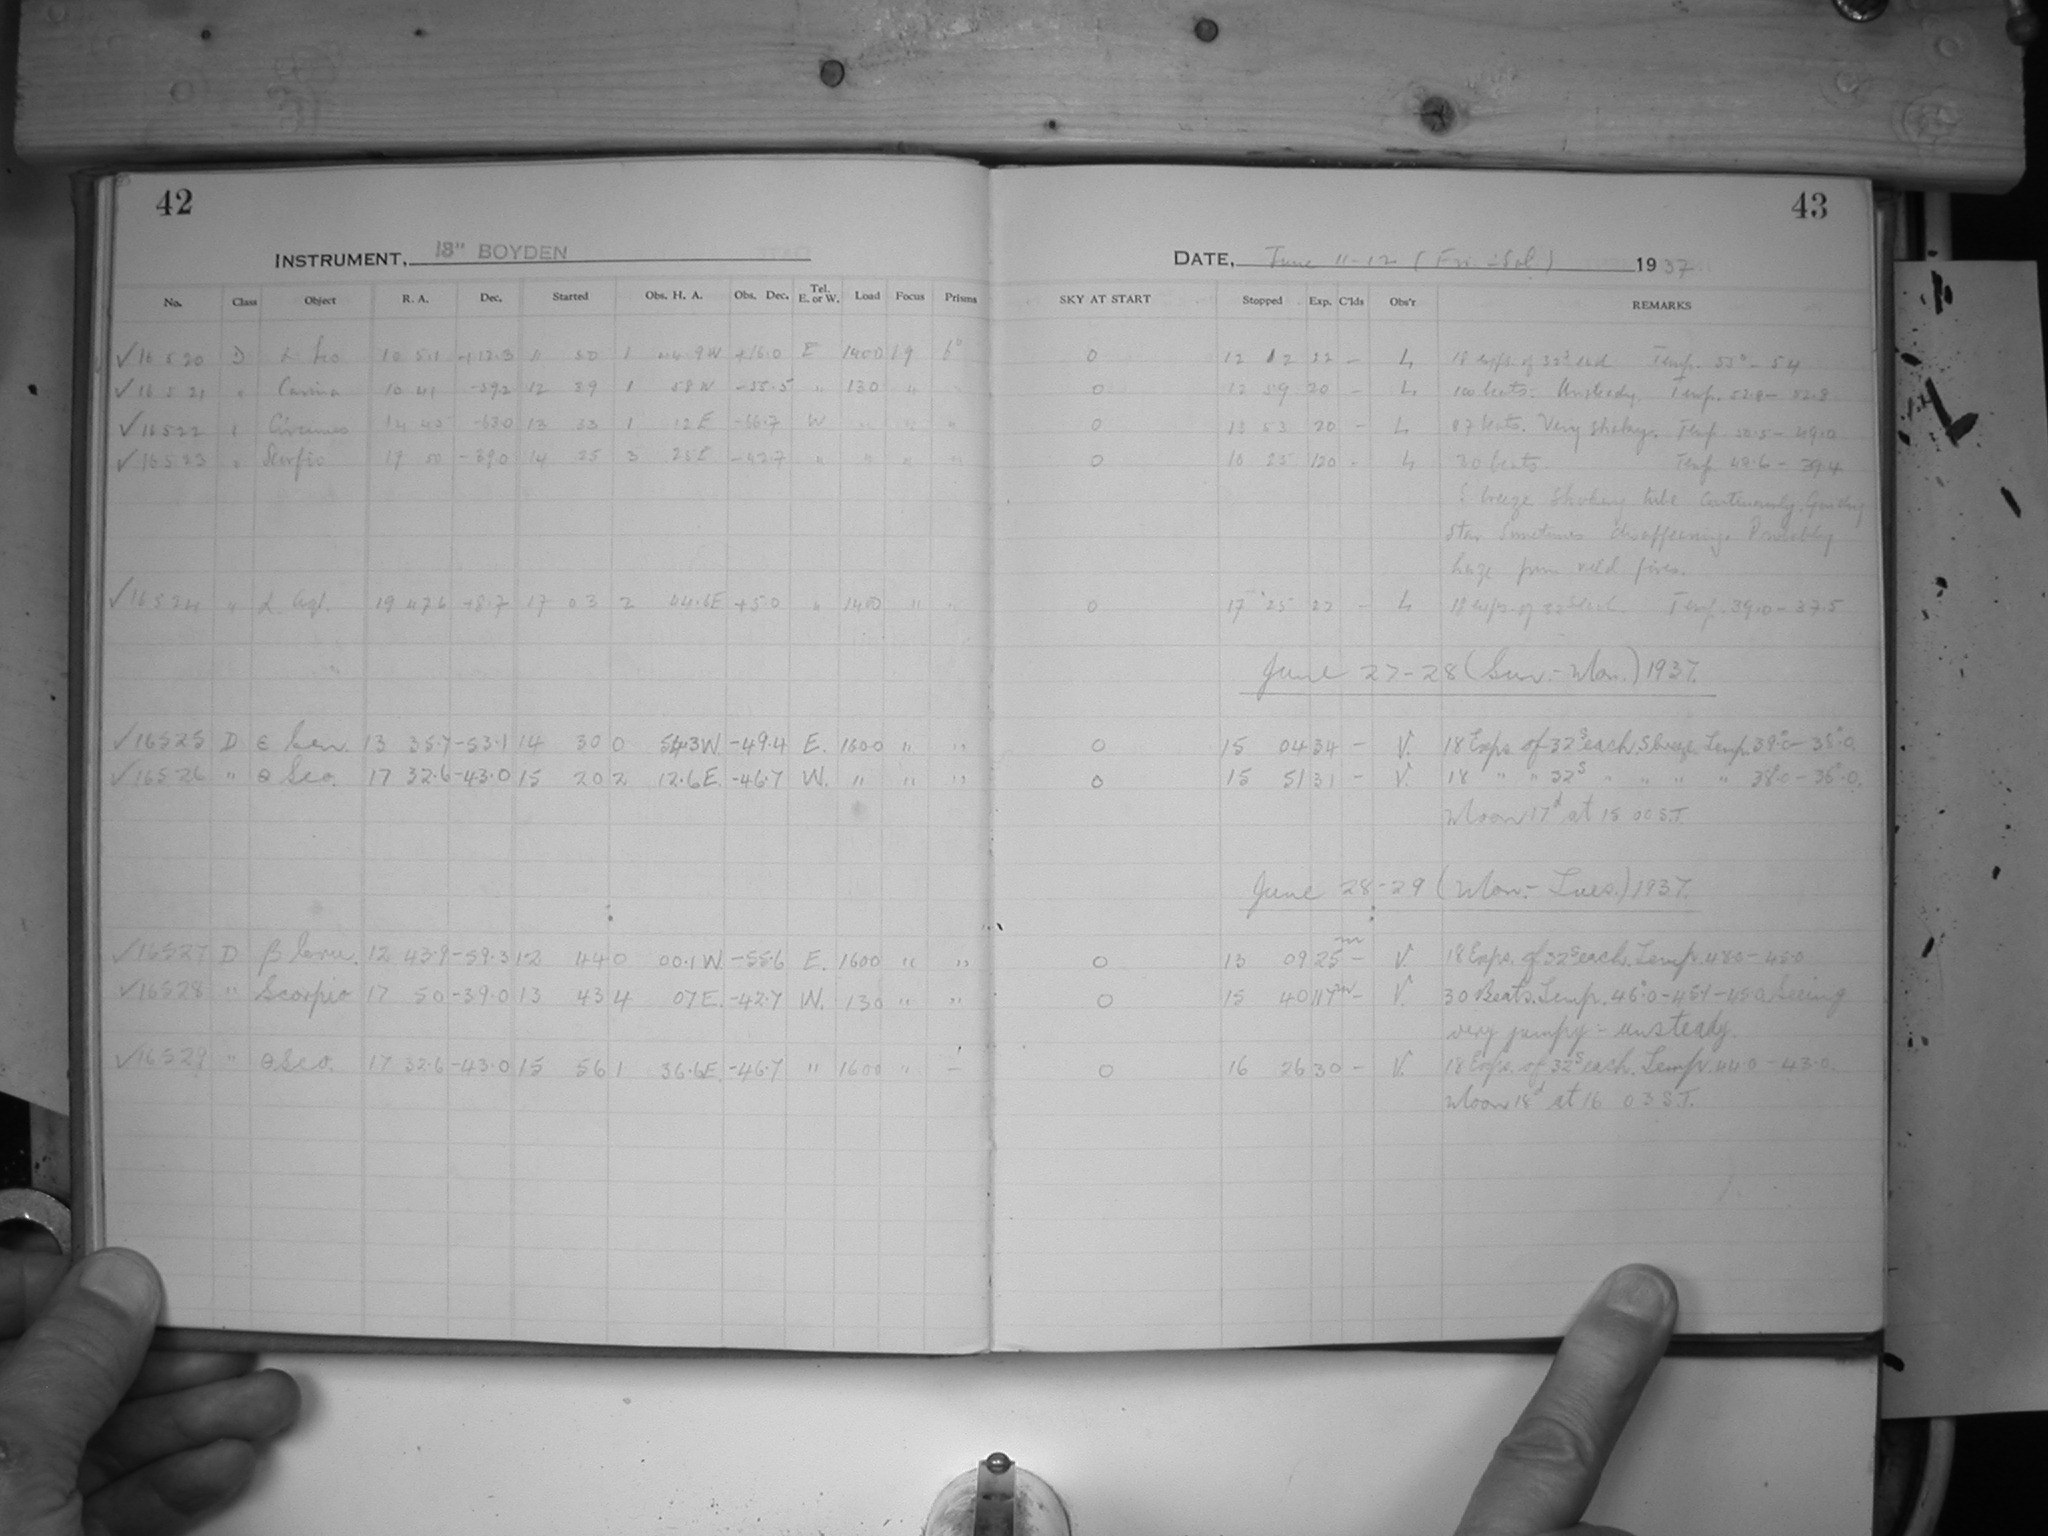 42
43
INSTRUMENT, 18" BOYDEN
DATE, June 11-12 (Fri.-Sat) 1937
No. Class Object R. A. Dec. Started Obs. H. A. Obs. Dec. Tel. E. or W. Load Focus Prisms SKY AT START Stopped Exp. C'lds Obs'r REMARKS
✓16520 D 10 51 +12.3 11 50 1 W +16.0 E 1400 1.9 6° 0 12 12 22 - L 18 exps. of 32s each Temp. 55° - 54
✓16521 " Carina 10 41 -59.2 12 39 1 58 W -55.5 " 130 " " 0 12 59 20 - L 100 beats. Unsteady. Temp. 52.8 - 52.8
✓16522 " Circinus 14 45 -63.0 13 33 1 12 E -66.7 W " " " 0 13 53 20 - L 87 beats. Very shaky. Temp 50.5 - 49.0
✓16523 " Scorpio 17 50 -39.0 14 25 3 25 E -42.7 " " " " 0 16 25 120 - L 30 beats. Temp. 48.6 - 39.4
S. breeze shaking tube continuously. Guiding
star sometimes disappearing. Possibly
haze from veld fires.
✓16524 " α Aql. 19 47.6 +8.7 17 03 2 44.6E +5.0 " 1400 " " 0 17 25 22 - L 18 exps. of 32s each Temp. 39.0 - 37.5
June 27-28 (Sun.-Mon.) 1937.
✓16525 D ε Cen. 13 35.7 -53.1 14 30 0 54.3W -49.4 E. 1600 " " 0 15 04 34 - V. 18 Exps. of 32s each. S breeze. Temp. 39°.0 - 38°.0.
✓16526 " θ Sco. 17 32.6 -43.0 15 20 2 12.6E. -46.7 W. " " " 0 15 51 31 - V. 18 " " 32s " " " " 38.0 - 36°.0.
Moon 17d at 15 00 S.T.
June 28-29 (Mon.- Tues.) 1937.
✓16527 D β Cruc. 12 43.9 -59.3 12 44 0 00.1W -55.6 E. 1600 " " 0 13 09 25m - V 18 Exps. of 32s each. Temp. 48.0 - 46.0
✓16528 " Scorpio 17 50 -39.0 13 43 4 07E. -42.7 W. 130 " " 0 15 40 117m - V. 30 Beats. Temp. 46°.0 - 45.1 - 45.0. Seeing
very jumpy - unsteady.
✓16529 " θ Sco. 17 32.6 -43.0 15 56 1 36.6E. -46.7 " 1600 " - 0 16 26 30 - V. 18 Exps. of 32s each. Temp. 44.0 - 43.0.
Moon 18d at 16 03 S.T.